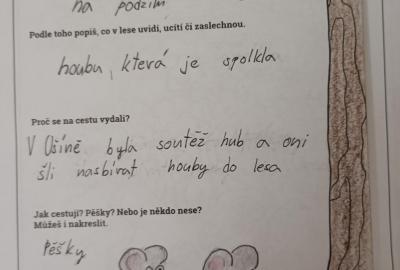 na podzim
Podle toho popiš, co v lese uvidí, ucítí či zaslechnou.
houbu, která je spolkla
Proč se na cestu vydali?
V Ošíně byla soutěž hub a oni
šli nasbírat houby do lesa
Jak cestují? Pěšky? Nebo je někdo nese?
Můžeš i nakreslit.
Pěšky